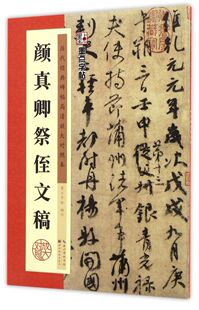 历代经典碑帖高清放大对照本
墨点字帖
颜真卿祭侄文稿
維乾元元年歲次戊戌九月庚
午朔三日壬申
第十三
銀青光祿
夫使持節蒲州諸軍事蒲州
刺史上輕車都尉丹